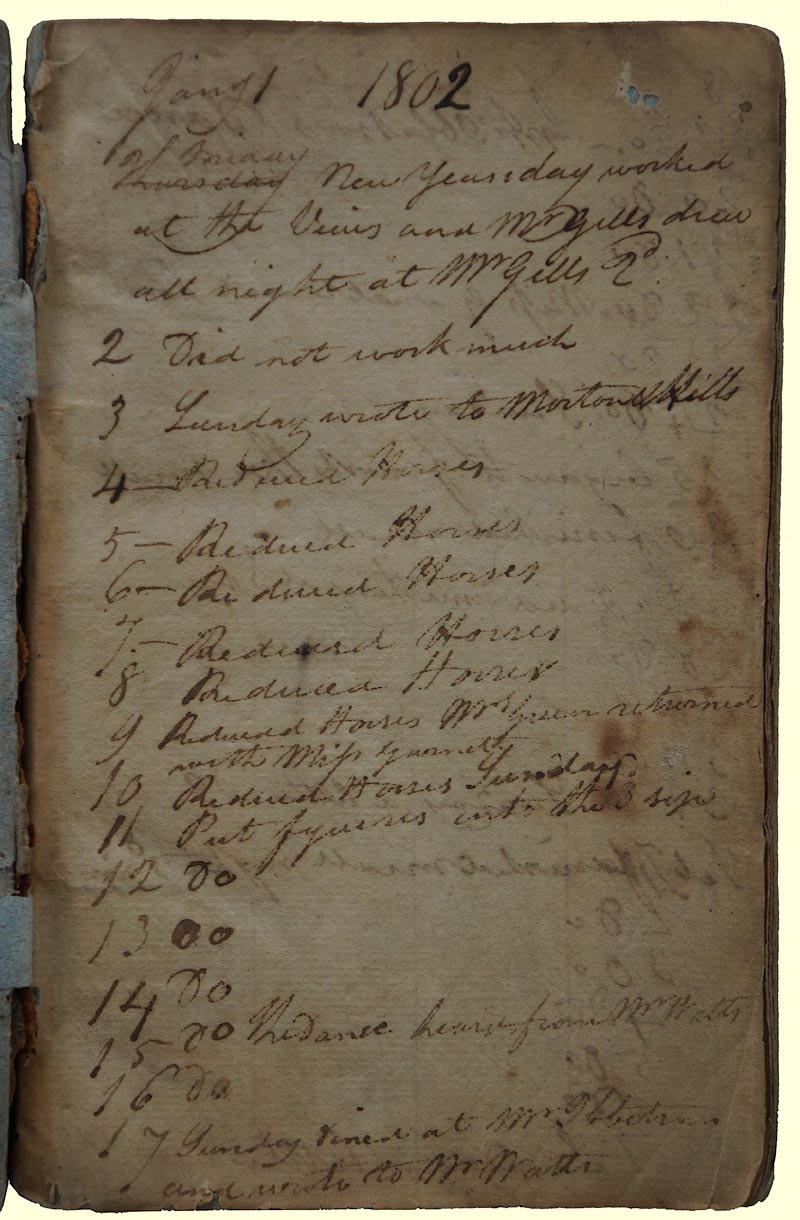 Jany 1 1802
Friday
Thursday New Yearsday worked
at the Views and Mr Gills drew
all night at Mr Gills 2d
2 Did not work much
3 Sunday wrote to Morton & Hills
4 – Reduced Horses
5 – Reduced Horses
6 – Reduced Horses
7 – Reduced Horses
8 Reduced Horses
9 Reduced Horses Mrs Green returned
with Miss Garnett
10 Reduced Horses Sunday
11 Put fguires into the 3 six
12 Do
13 Do
14 Do
15 Do heard from Mr Watts
16 Do
17 Sunday dined at Mr
and wrote to Mr Watts